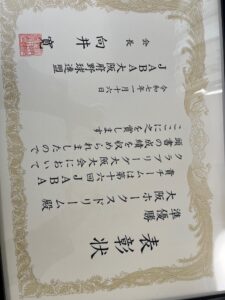 表彰状
準優勝
大阪ホークスドリーム殿
貴チームは第十六回JABA
大阪大会において
頭書の成績を収められましたので
ここに之を賞します
令和七年一月十六日
JABA大阪府野球連盟
会長 向井 寛